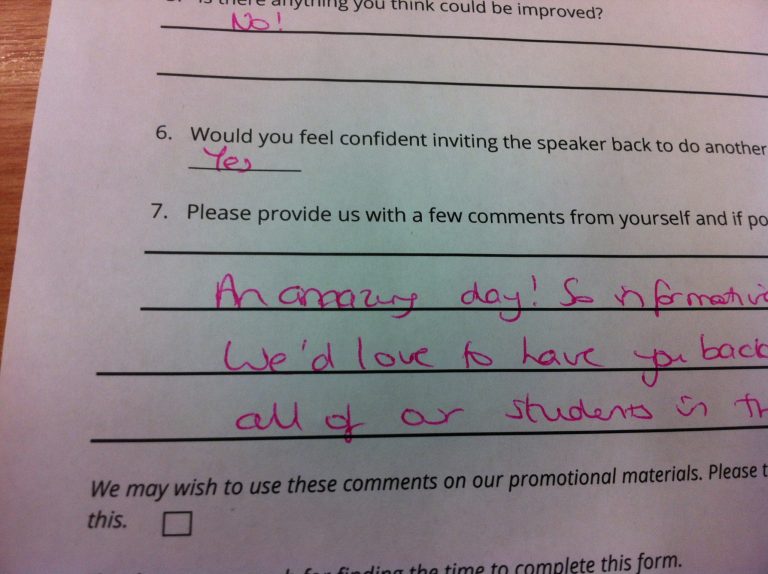 Is there anything you think could be improved?
No!
6. Would you feel confident inviting the speaker back to do another
Yes
7. Please provide us with a few comments from yourself and if po
An amazing day! So informativ
We'd love to have you back
all of our students in th
We may wish to use these comments on our promotional materials. Please t
this.
for finding the time to complete this form.